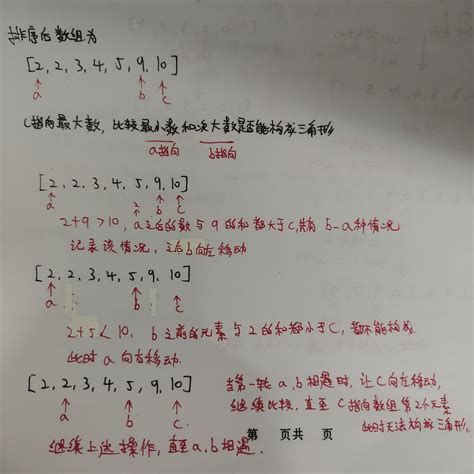 排序后数组为
[2, 2, 3, 4, 5, 9, 10]
a b c
C指向最大数, 比较最小数和次大数是否能构成三角形
a指向 b指向
[2, 2, 3, 4, 5, 9, 10]
a b c
2+9>10, a之后的数与9的和都大于C, 共有b-a种情况
记录该情况, 之后b向左移动
[2, 2, 3, 4, 5, 9, 10]
a b c
2+5<10, b之前的元素与2的和都小于C, 都不能构成
此时a向右移动.
[2, 2, 3, 4, 5, 9, 10]
a b c
继续上述操作, 直至a,b相遇.
当第一轮a,b相遇时, 让C向左移动,
继续比较, 直至C指向数组第2个元素
此时无法构成三角形.
第 页共 页